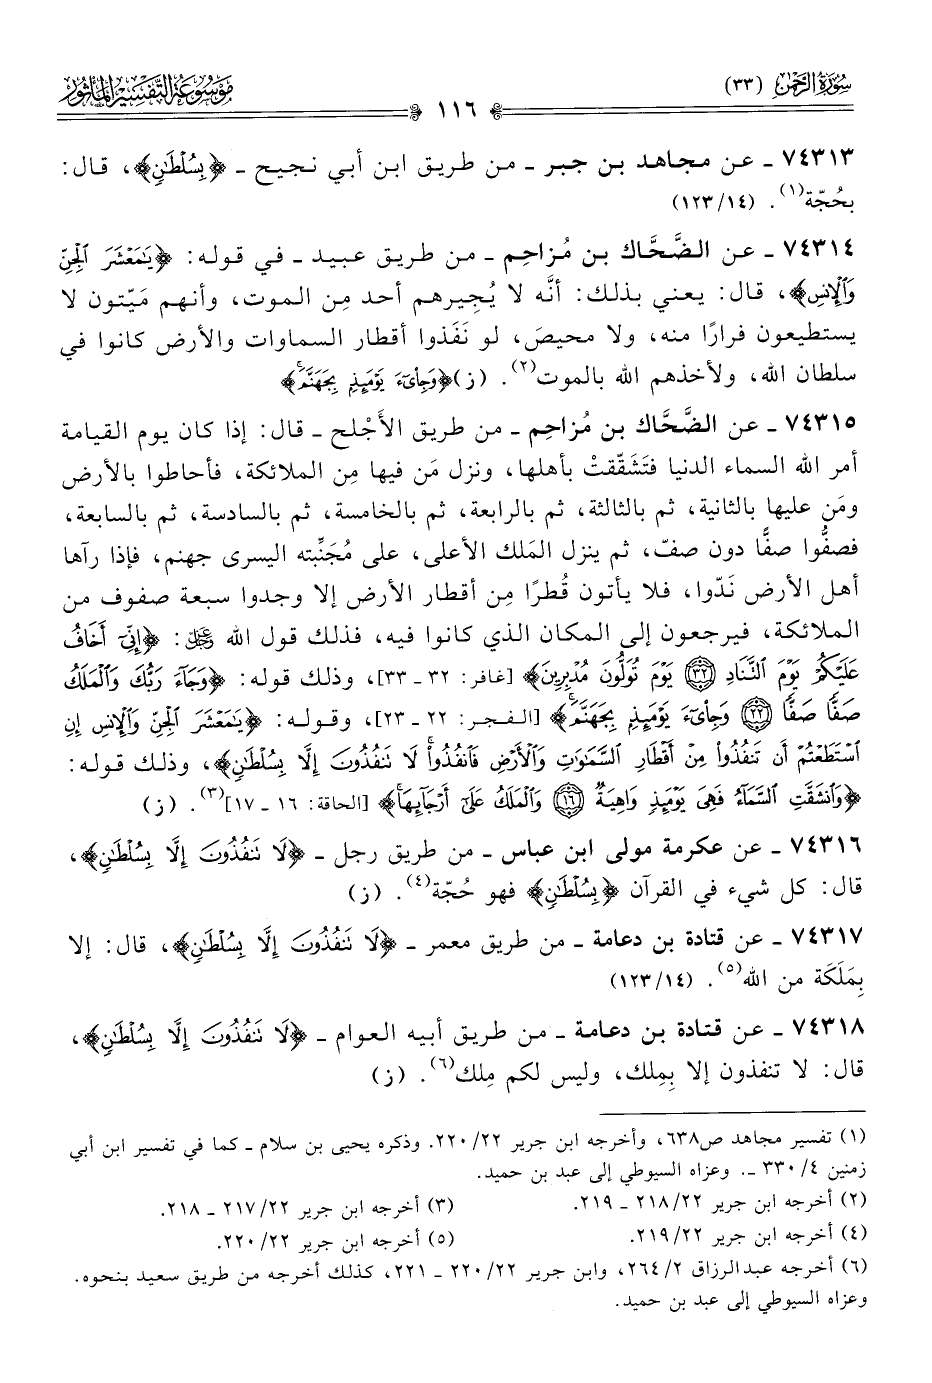 سُورَةُ الرَّحْمٰن (٣٣)
١١٦
مَوْسُوعَةُ التَّفْسِيرِ المَأْثُور
٧٤٣١٣ ـ عن مجاهد بن جبر ـ من طريق ابن أبي نجيح ـ ﴿بِسُلْطَٰنٍ﴾، قال:
بحُجّة(١). (١٢٣/١٤)
٧٤٣١٤ ـ عن الضَّحَّاك بن مُزاحِم ـ من طريق عبيد ـ في قوله: ﴿يَٰمَعْشَرَ ٱلْجِنِّ
وَٱلْإِنسِ﴾، قال: يعني بذلك: أنَّه لا يُجِيرهم أحد مِن الموت، وأنهم مَيّتون لا
يستطيعون فرارًا منه، ولا محيصَ، لو نَفَذوا أقطار السماوات والأرض كانوا في
سلطان الله، ولأخذهم الله بالموت(٢). (ز)﴿وَجِاْىٓءَ يَوْمَئِذٍۭ بِجَهَنَّمَۚ﴾
٧٤٣١٥ ـ عن الضَّحَّاك بن مُزاحِم ـ من طريق الأَجْلح ـ قال: إذا كان يوم القيامة
أمر الله السماء الدنيا فتَشَقّقتْ بأهلها، ونزل مَن فيها مِن الملائكة، فأحاطوا بالأرض
ومَن عليها بالثانية، ثم بالثالثة، ثم بالرابعة، ثم بالخامسة، ثم بالسادسة، ثم بالسابعة،
فصفُّوا صفًّا دون صفّ، ثم ينزل المَلك الأعلى، على مُجَنِّبته اليسرى جهنم، فإذا رآها
أهل الأرض نَدّوا، فلا يأتون قُطرًا مِن أقطار الأرض إلا وجدوا سبعة صفوف من
الملائكة، فيرجعون إلى المكان الذي كانوا فيه، فذلك قول الله عزوجل: ﴿إِنِّىٓ أَخَافُ
عَلَيْكُمْ يَوْمَ ٱلتَّنَادِ ٣٢ يَوْمَ تُوَلُّونَ مُدْبِرِينَ﴾ [غافر: ٣٢ ـ ٣٣]، وذلك قوله: ﴿وَجَآءَ رَبُّكَ وَٱلْمَلَكُ
صَفًّا صَفًّا ٢٢ وَجِاْىٓءَ يَوْمَئِذٍۭ بِجَهَنَّمَۚ﴾ [الفجر: ٢٢ ـ ٢٣]، وقوله: ﴿يَٰمَعْشَرَ ٱلْجِنِّ وَٱلْإِنسِ إِنِ
ٱسْتَطَعْتُمْ أَن تَنفُذُوا۟ مِنْ أَقْطَارِ ٱلسَّمَٰوَٰتِ وَٱلْأَرْضِ فَٱنفُذُوا۟ۚ لَا تَنفُذُونَ إِلَّا بِسُلْطَٰنٍ﴾، وذلك قوله:
﴿وَٱنشَقَّتِ ٱلسَّمَآءُ فَهِىَ يَوْمَئِذٍ وَاهِيَةٌ ١٦ وَٱلْمَلَكُ عَلَىٰٓ أَرْجَآئِهَاۚ﴾ [الحاقة: ١٦ ـ ١٧](٣). (ز)
٧٤٣١٦ ـ عن عكرمة مولى ابن عباس ـ من طريق رجل ـ ﴿لَا تَنفُذُونَ إِلَّا بِسُلْطَٰنٍ﴾،
قال: كل شيء في القرآن ﴿بِسُلْطَٰنٍ﴾ فهو حُجّة(٤). (ز)
٧٤٣١٧ ـ عن قتادة بن دعامة ـ من طريق معمر ـ ﴿لَا تَنفُذُونَ إِلَّا بِسُلْطَٰنٍ﴾، قال: إلا
بِمَلَكَة من الله(٥). (١٢٣/١٤)
٧٤٣١٨ ـ عن قتادة بن دعامة ـ من طريق أبيه العوام ـ ﴿لَا تَنفُذُونَ إِلَّا بِسُلْطَٰنٍ﴾،
قال: لا تنفذون إلا بِمِلك، وليس لكم مِلك(٦). (ز)
(١) تفسير مجاهد ص٦٣٨، وأخرجه ابن جرير ٢٢/ ٢٢٠. وذكره يحيى بن سلام ـ كما في تفسير ابن أبي
زمنين ٤/ ٣٣٠ ـ. وعزاه السيوطي إلى عبد بن حميد.
(٢) أخرجه ابن جرير ٢٢/ ٢١٨ ـ ٢١٩.
(٣) أخرجه ابن جرير ٢٢/ ٢١٧ ـ ٢١٨.
(٤) أخرجه ابن جرير ٢٢/ ٢١٩.
(٥) أخرجه ابن جرير ٢٢/ ٢٢٠.
(٦) أخرجه عبدالرزاق ٢/ ٢٦٤، وابن جرير ٢٢/ ٢٢٠ ـ ٢٢١، كذلك أخرجه من طريق سعيد بنحوه.
وعزاه السيوطي إلى عبد بن حميد.